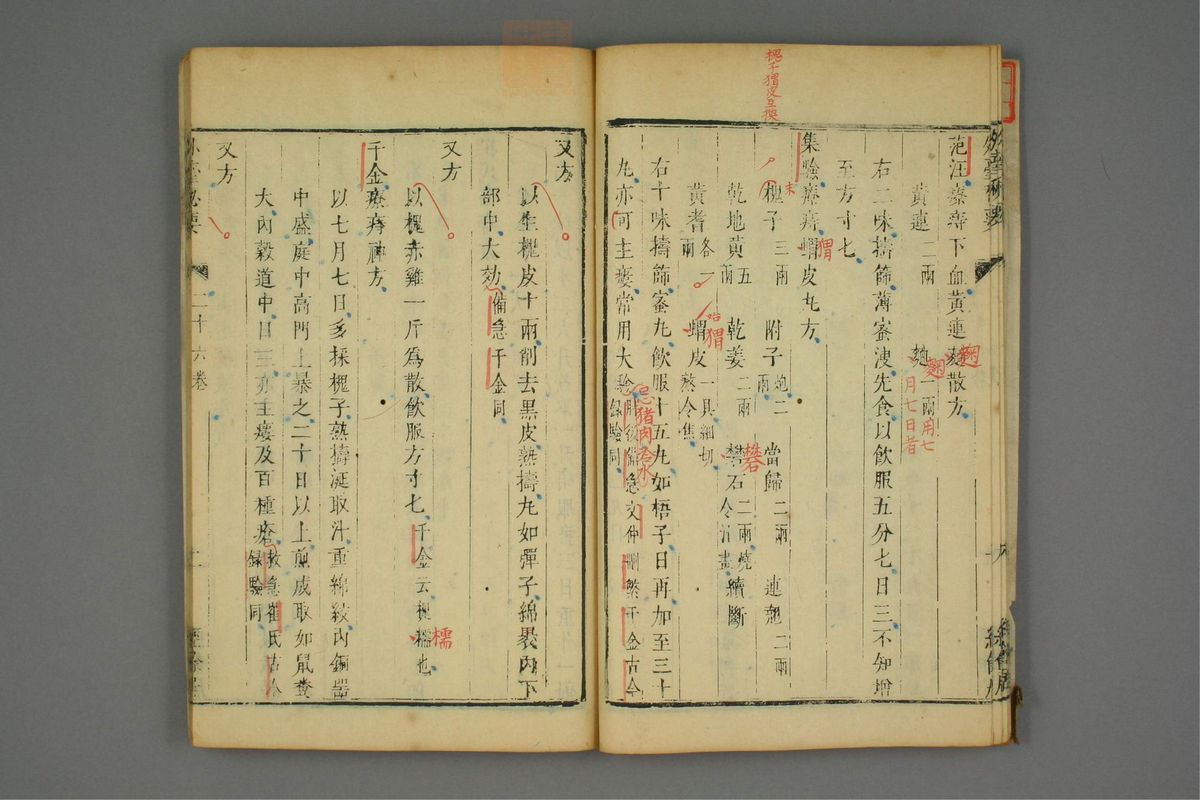 槐子猬皮互換
范汪療痔下血黃連麴散方
麴
黃連二兩 麴一兩
麴
用七月七日者
右二味擣篩薄蜜溲先食以飲服五分匕日三不知增
至方寸匕
集驗療痔蝟皮丸方
猬
末
槐子三兩 附子炮二兩 當歸二兩 連翹二兩
乾地黃五兩 乾姜二兩 礬石二兩燒令汁盡 續斷
礬
黃耆各一兩 蝟皮一具細切熬令焦
猬
右十味擣篩蜜丸飲服十五丸如梧子日再加至三十
丸亦可主瘻常用大驗肘後備急文仲刪繁千金古今錄驗同
忌猪肉冷水
外臺秘要
又方
以生槐皮十兩削去黑皮熟擣丸如彈子綿裹內下
部中大効備急千金同
又方
以槐赤雞一斤為散飲服方寸匕千金云槐檽也
檽
千金療痔神方
以七月七日多採槐子熟擣涎取汁重綿絞內銅器
中盛庭中高門上暴之二十日以上煎成取如鼠糞
大內穀道中日三亦主瘻及百種瘡救急崔氏古今錄驗同
又方
外臺秘要 二十六卷